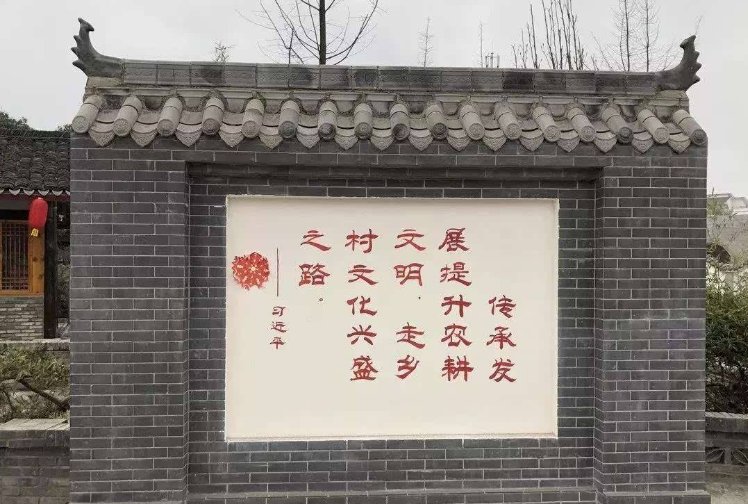 传承发
展提升农耕
文明，走乡
村文化兴盛
之路。
——习近平